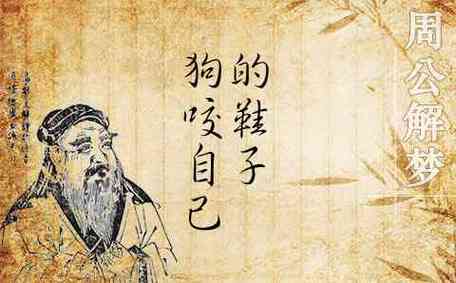 周公解梦
狗咬自己
的鞋子